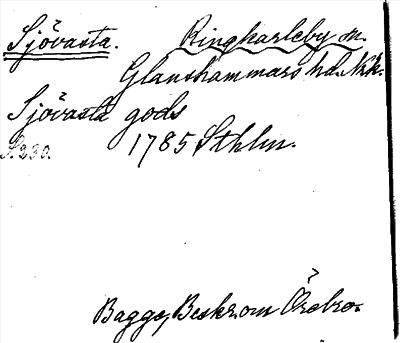 Sjövasta. Ringkarleby sn.
Glanshammars hd. Nkr.
Sjövasta gods
S. 230. 1785 Sthlm.
Bagge, Beskr. om Örebro.